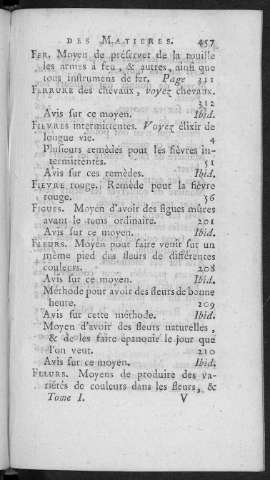 DES MATIERES. 457
FER. Moyen de préserver de la rouille
les armes à feu, & autres, ainsi que
tous instrumens de fer. Page 311
FERRURE des chevaux, voyez chevaux.
312
Avis sur ce moyen. Ibid.
FIEVRES intermittentes. Voyez élixir de
longue vie. 4
Plusieurs remèdes pour les fièvres in-
termittentes. 51
Avis sur ces remèdes. Ibid.
FIEVRE rouge. Remède pour la fièvre
rouge. 56
FIGUES. Moyen d'avoir des figues mûres
avant le tems ordinaire. 201
Avis sur ce moyen. Ibid.
FLEURS. Moyen pour faire venir sur un
même pied des fleurs de différentes
couleurs. 208
Avis sur ce moyen. Ibid.
Méthode pour avoir des fleurs de bonne
heure. 209
Avis sur cette méthode. Ibid.
Moyen d'avoir des fleurs naturelles,
& de les faire épanouir le jour que
l'on veut. 210
Avis sur ce moyen. Ibid.
FLEURS. Moyens de produire des va-
riétés de couleurs dans les fleurs, &
Tome I. V